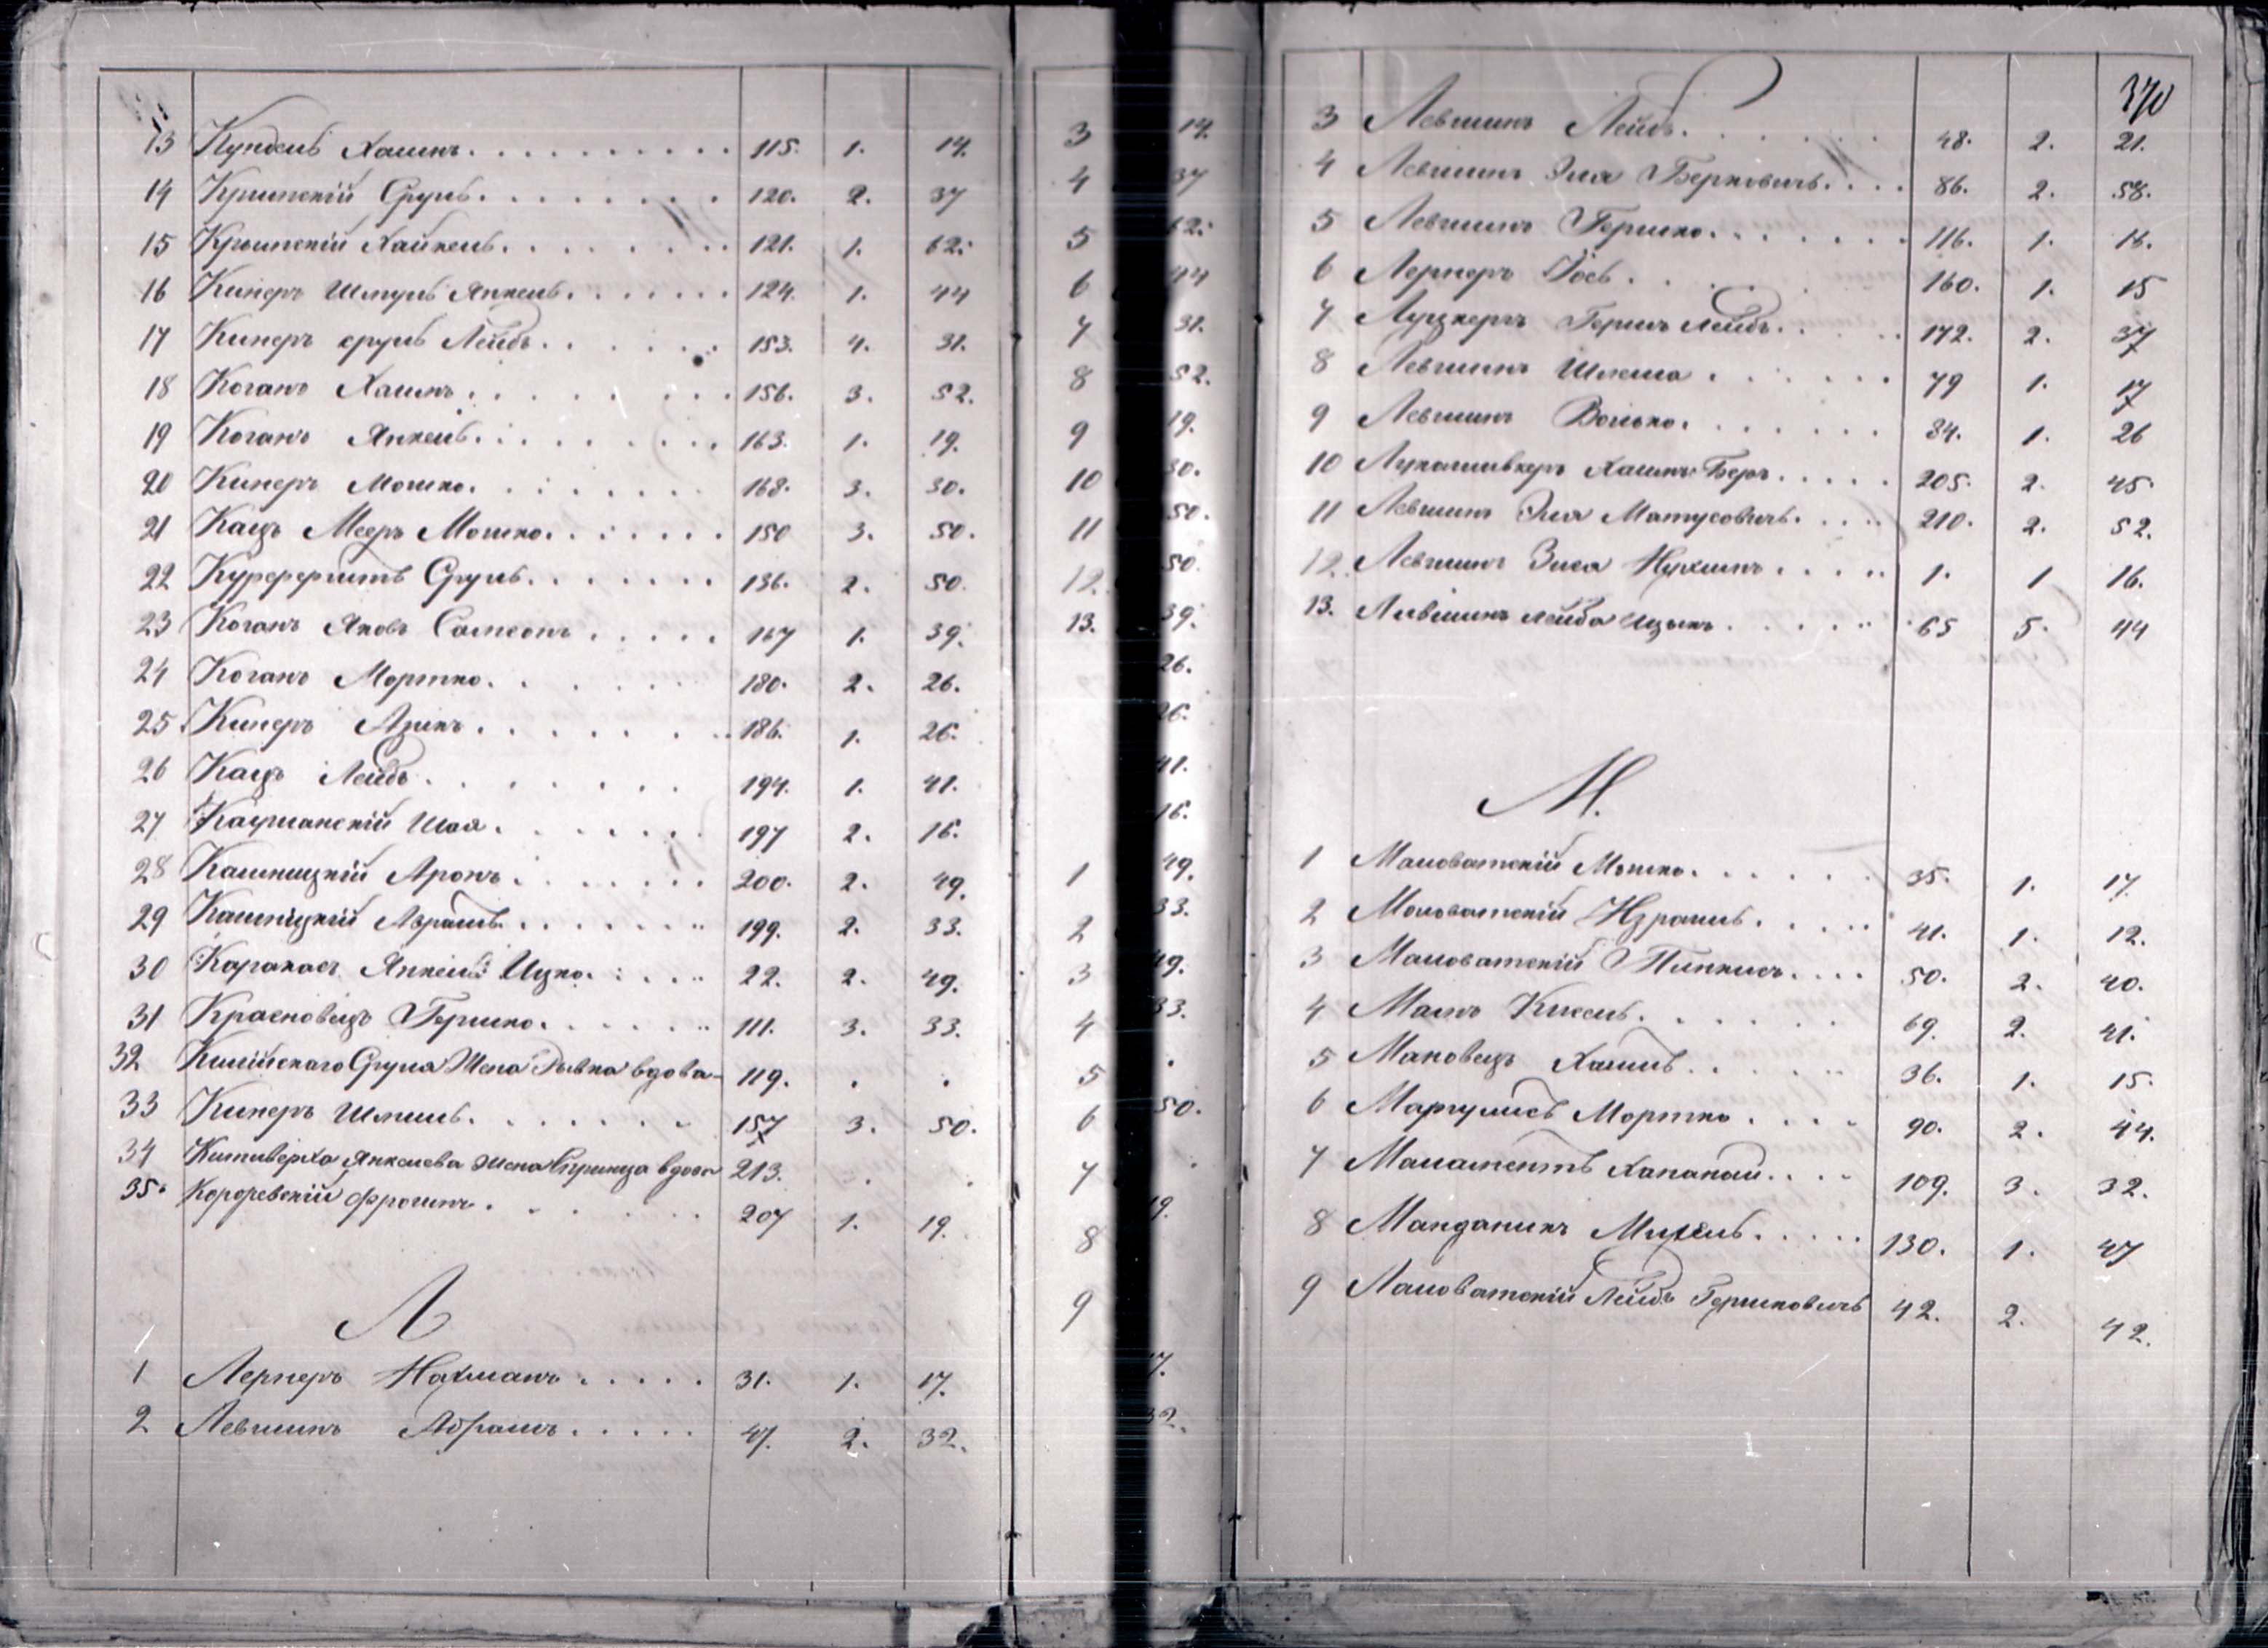 13 Кундель Хаимъ. 115. 1. 14.
14 Кримскій Сруль. 120. 2. 37
15 Крымскій Хайкель. 121. 1. 62.
16 Киперъ Шмуль Янкель. 124. 1. 44
17 Киперъ Сруль Лейбъ. 153. 4. 31.
18 Коганъ Хаимъ. 156. 3. 52.
19 Коганъ Янкель. 163. 1. 19.
20 Киперъ Мошко. 168. 3. 30.
21 Кацъ Мееръ Мошко. 150 3. 50.
22 Сруль. 136. 2. 50.
23 Коганъ Яковъ Самсонъ. 167 1. 39.
24 Коганъ Мортко. 180. 2. 26.
25 Киперъ Азикъ. 186. 1. 26.
26 Кацъ Лейбъ. 194. 1. 41.
27 Каушанскій Шая. 197 2. 16.
28 Кашницкій Аронъ. 200. 2. 49.
29 Кашницкій Абрамъ. 199. 2. 33.
30 Каракасъ Янкель Ицко. 22. 2. 49.
31 Красновецъ Гершко. 111. 3. 33.
32 Килійскаго Сруля Жена Ривка вдова 119. . .
33 Киперъ Шмиль. 157 3. 50.
34 Янкелева жена вдова 213. . .
35. Фроимъ. 207 1. 19.
Л
1 Лернеръ Нахманъ. 31. 1. 17.
2 Левшинъ Абрамъ. 47. 2. 32.
3 14.
4 37
5 62.
6 44
7 31.
8 52.
9 19.
10 30.
11 50.
12. 50.
13. 39.
26.
26.
41.
16.
1 49.
2 33.
3 49.
4 33.
5 .
6 50.
7 .
8 19.
9
17.
32.
370
3 Левшинъ Лейбъ. 48. 2. 21.
4 Левшинъ Эля Берковичъ. 86. 2. 58.
5 Левшинъ Гершко. 116. 1. 16.
6 Лернеръ Іосъ. 160. 1. 15
7 Луцкеръ Гершъ Лейбъ. 172. 2. 37
8 Левшинъ Шлема. 79 1. 17
9 Левшинъ Волько. 84. 1. 26
10 Хаимъ Беръ. 205. 2. 45.
11 Левшинъ Эля Матусовичъ. 210. 2. 52.
12. Левшинъ Зися Нухимъ. 1. 1 16.
13. Лившинъ Лейба Ицыкъ. 65 5. 44
М.
1 Маловатскій Мошко. 35. 1. 17.
2 Моловатскій Израиль. 41. 1. 12.
3 Маловатскій Пинкисъ. 50. 2. 40.
4 Маъ Кисель. 69. 2. 41.
5 Маковецъ Хаимъ. 36. 1. 15.
6 Маргулисъ Мортко. 90. 2. 44.
7 Маламентъ Хананай. 109. 3. 32.
8 Манданикъ Михель. 130. 1. 47
9 Маловатскій Лейбъ Гершковичъ 42. 2. 42.